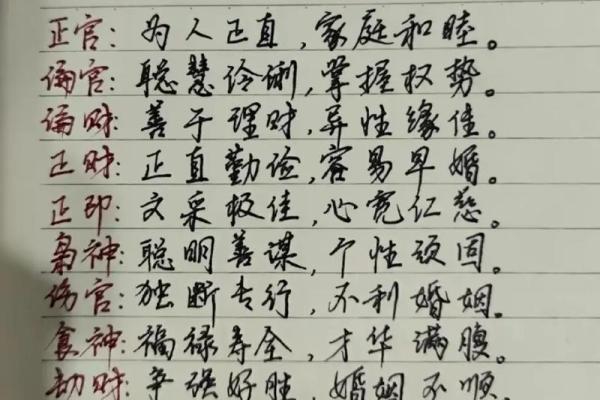 正官：为人正直，家庭和睦。
偏官：聪慧伶俐，掌握权势。
偏财：善于理财，异性缘佳。
正财：正直勤俭，容易早婚。
正印：文采极佳，心宽仁慈。
枭神：聪明善谋，个性顽固。
伤官：独断专行，不利婚姻。
食神：福禄寿全，才华满腹。
劫财：争强好胜，婚姻不顺。